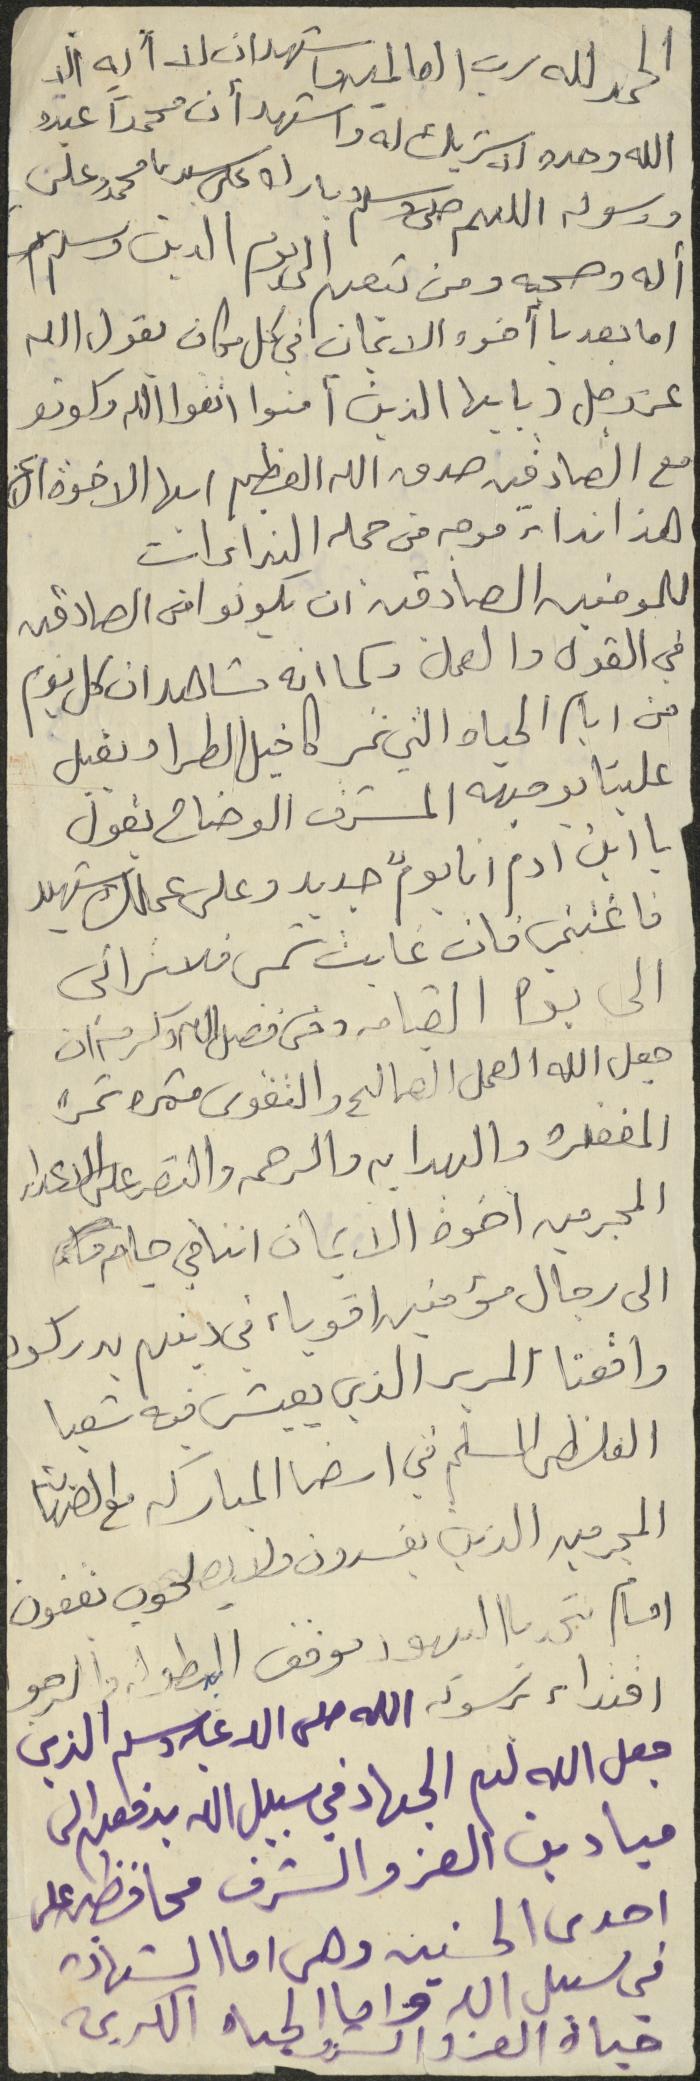 الحمد لله رب العالمين واشهد ان لا أله الا
الله وحده لا شريك له واشهد أن محمداً عبده
ورسوله اللهم صلى وسلم بارك على سيدنا محمد وعلى
أله وصحبه ومن تبعهم الى يوم الدين وسلم
اما بعد يا أخوه الايمان في كل مكان يقول الله
عز وجل ( يايها الذين آمنوا اتقوا الله وكونو
مع الصادقين صدق الله العظيم ايها الاخوة
هذا نداء موجه من جمله النداءات
للمومنين الصادقين ان يكونوا من الصادقين
في القول والعمل وكما انه مشاهد ان كل يوم
من ايام الحياه التي تمر كاخيل الطراد يقبل
علينا بوجهه المشرف الوضاح يقول
يا ابن ادم انا يومٌ جديد وعلى عملك شهيد
فاغتنمي فان غابت شمسي فلا تراني
الى يوم القيامه ومن فضل الله وكرمه ان
جعل الله العمل الصالح والتقوى مثمره ثمرة
المغفله والهدايه والرحمه والنصر على الاعداء
المجرمين اخوة الايمان اننا في حاجه
الى رجال مؤمنين اقوياء في دينهم يدركون
واقعنا المرير الذي يعيش فيه شعبا
الفلسطيني المسلم في ارضا المباركه مع الصهاينه
المجرمين الذين يفسدون ولا يصلحون يقفون
امام تحديا اليهود موقف البطوله والرجو
اقتداء برسوله الله صلى الله عليه وسلم الذين
جعل الله لهم الجهاد في سبيل الله يدفعهم الى
ميادين العز والشرف محافظين على
احدى الحسنين وهي اما الشهاده
في سبيل الله واما الحياه الكريمه
حياة العز والشرف